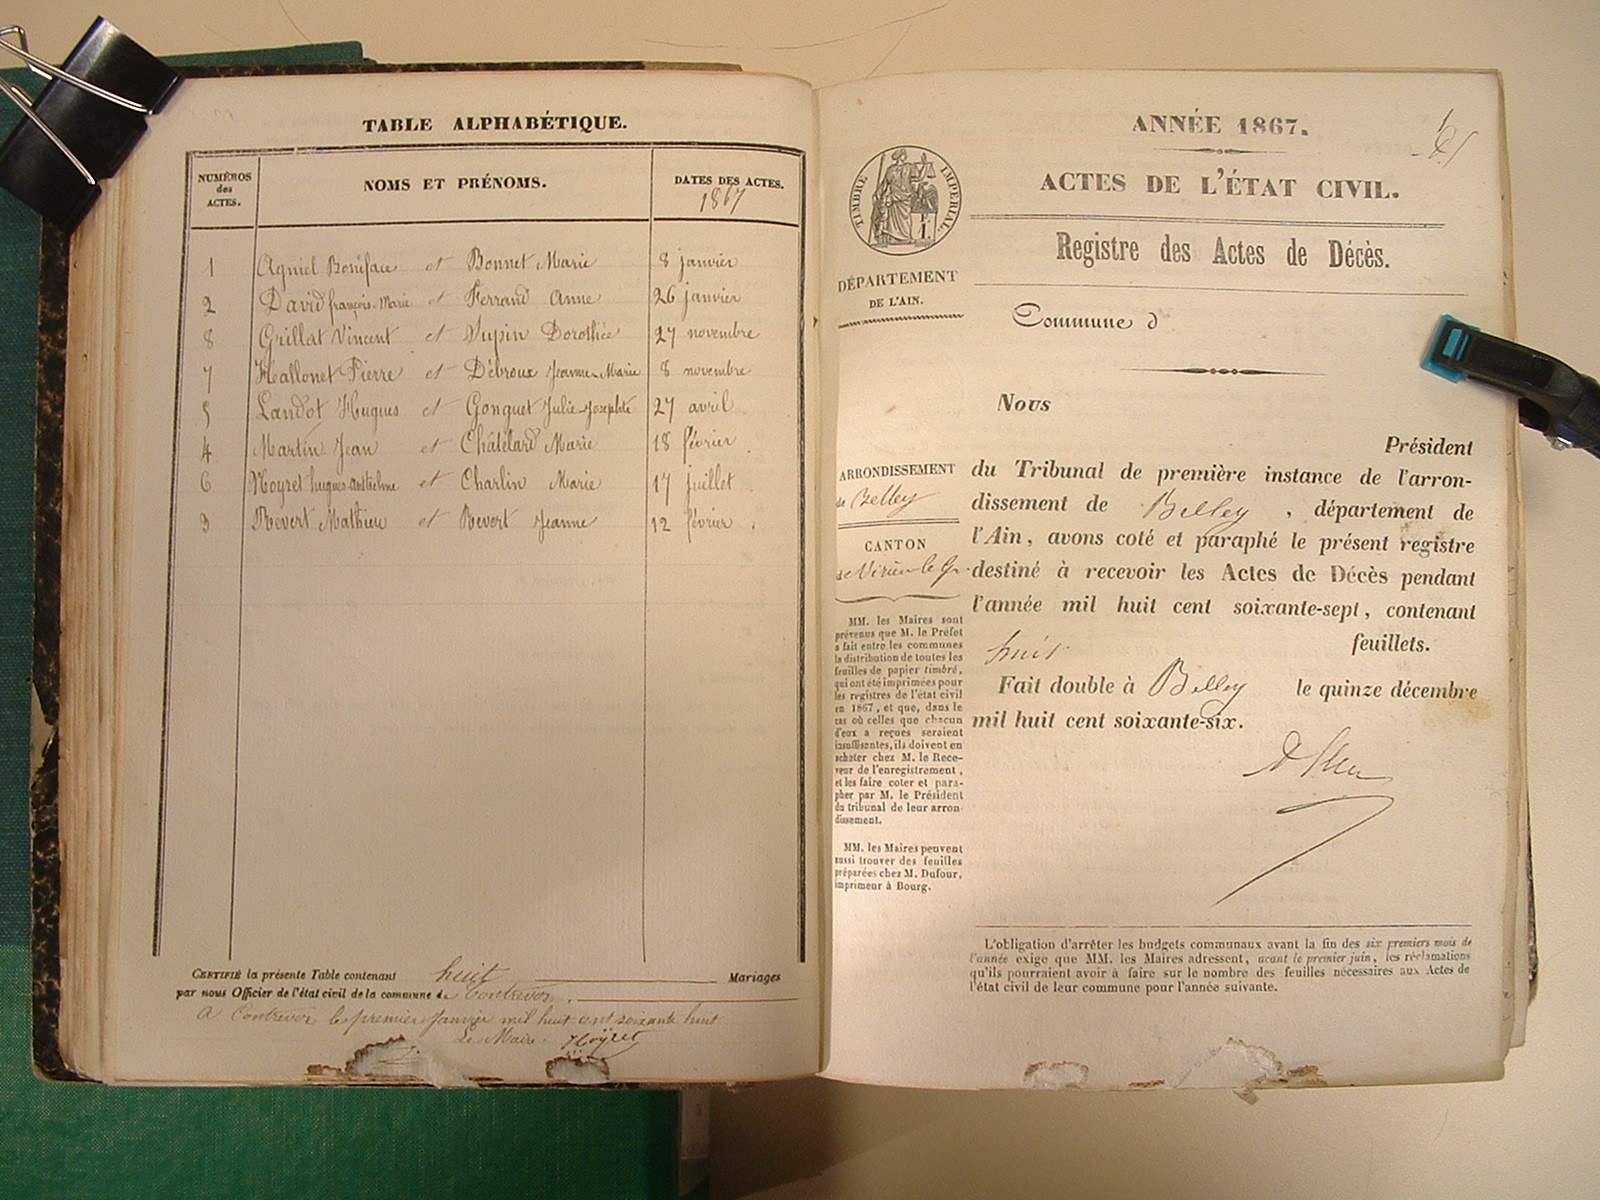 TABLE ALPHABÉTIQUE.
NUMÉROS
des
ACTES.
NOMS ET PRÉNOMS.
DATES DES ACTES.
1867
1 Agniel Boniface et Bonnet Marie 8 janvier
2 David françois-Marie et Ferrand Anne 26 janvier
8 Grillat Vincent et Dupin Dorothée 27 novembre
7 Hallonet Pierre et Débroux Jeanne-Marie 8 novembre
5 Landot Hugues et Gonguet Julie-Josephte 27 avril
4 Martin Jean et Châtelard Marie 18 février
6 Noyret hugues-anthelme et Charlin Marie 17 juillet
3 Revert Mathieu et Revert Jeanne 12 février
CERTIFIÉ la présente Table contenant huit Mariages
par nous Officier de l'état civil de la commune de Contrevoz
A Contrevoz le premier Janvier mil huit cent soixante huit
Le Maire Noyret
ANNÉE 1867.
ACTES DE L'ÉTAT CIVIL.
TIMBRE IMPÉRIAL
Registre des Actes de Décès.
DÉPARTEMENT
DE L'AIN.
Commune d
Nous
Président
du Tribunal de première instance de l'arron-
dissement de Belley , département de
l'Ain, avons coté et paraphé le présent registre
destiné à recevoir les Actes de Décès pendant
l'année mil huit cent soixante-sept, contenant
huit feuillets.
Fait double à Belley le quinze décembre
mil huit cent soixante-six.
ARRONDISSEMENT
de Belley
CANTON
de Virieu le Gr.
MM. les Maires sont
prévenus que M. le Préfet
a fait entre les communes
la distribution de toutes les
feuilles de papier timbré,
qui ont été imprimées pour
les registres de l'état civil
en 1867, et que, dans le
cas où celles que chacun
d'eux a reçues seraient
insuffisantes, ils doivent en
acheter chez M. le Rece-
veur de l'enregistrement,
et les faire coter et para-
pher par M. le Président
du tribunal de leur arron-
dissement.
MM. les Maires peuvent
aussi trouver des feuilles
préparées chez M. Dufour,
imprimeur à Bourg.
L'obligation d'arrêter les budgets communaux avant la fin des six premiers mois de
l'année exige que MM. les Maires adressent, avant le premier juin, les réclamations
qu'ils pourraient avoir à faire sur le nombre des feuilles nécessaires aux Actes de
l'état civil de leur commune pour l'année suivante.